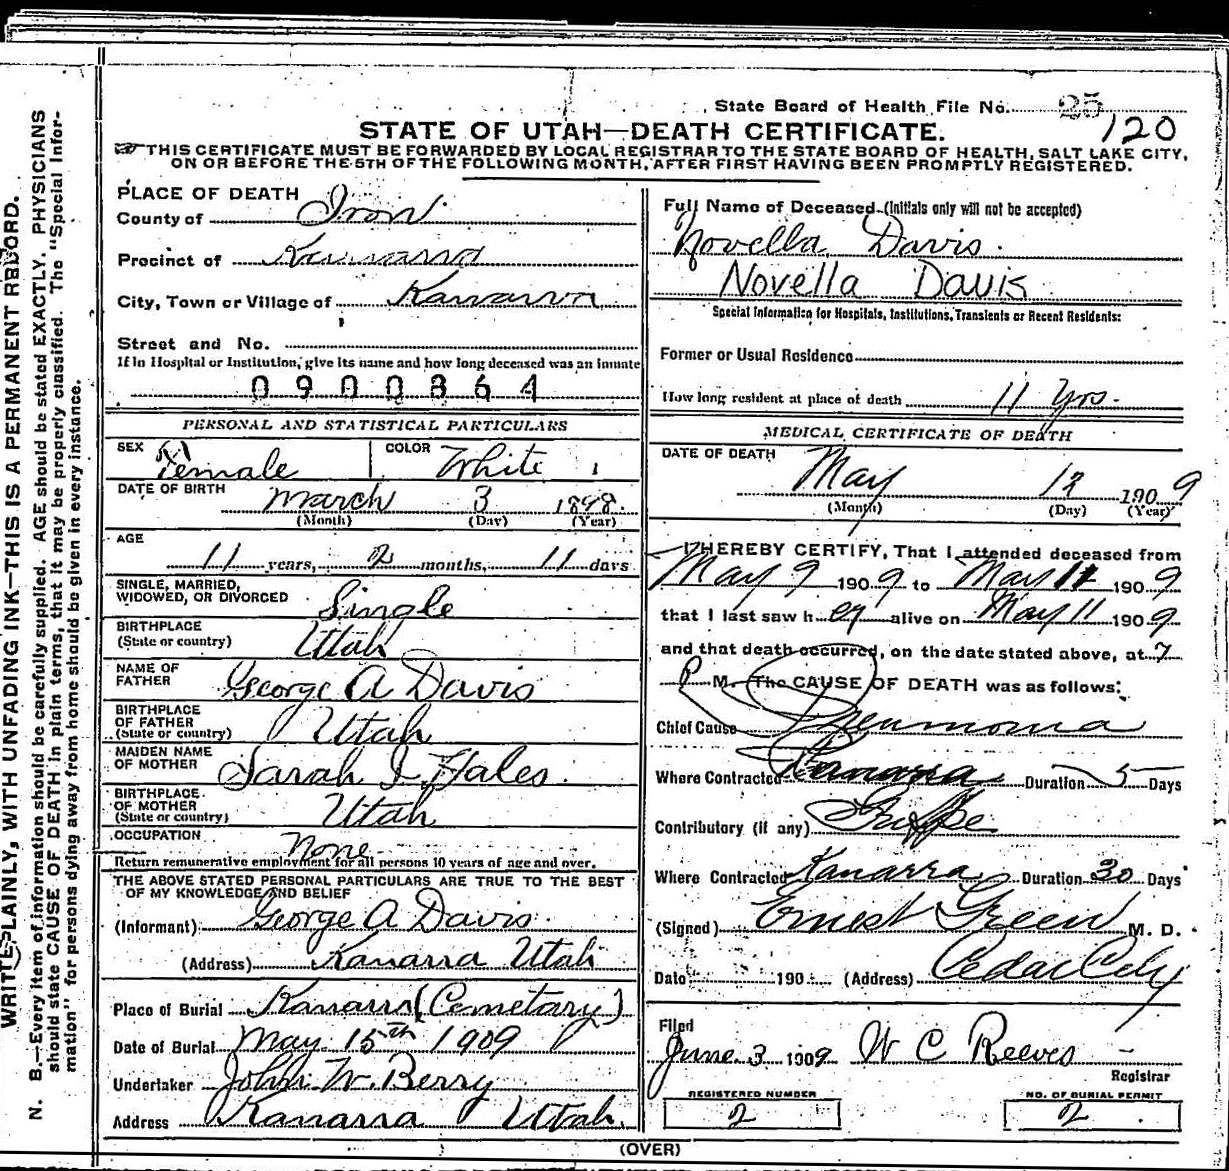 State Board of Health File No. 25
120
STATE OF UTAH—DEATH CERTIFICATE.
THIS CERTIFICATE MUST BE FORWARDED BY LOCAL REGISTRAR TO THE STATE BOARD OF HEALTH, SALT LAKE CITY,
ON OR BEFORE THE 5TH OF THE FOLLOWING MONTH, AFTER FIRST HAVING BEEN PROMPTLY REGISTERED.
WRITE PLAINLY, WITH UNFADING INK—THIS IS A PERMANENT RECORD.
N. B.—Every item of information should be carefully supplied. AGE should be stated EXACTLY. PHYSICIANS
should state CAUSE OF DEATH in plain terms, that it may be properly classified. The "Special Infor-
mation" for persons dying away from home should be given in every instance.
PLACE OF DEATH
County of Iron
Precinct of Kannarra
City, Town or Village of Kanarra
Street and No.
If in Hospital or Institution, give its name and how long deceased was an inmate
0900864
PERSONAL AND STATISTICAL PARTICULARS
SEX Female COLOR White
DATE OF BIRTH March 3 1898
(Month) (Day) (Year)
AGE
11 years, 2 months, 11 days
SINGLE, MARRIED,
WIDOWED, OR DIVORCED Single
BIRTHPLACE
(State or country) Utah
NAME OF
FATHER George A Davis
BIRTHPLACE
OF FATHER
(State or country) Utah
MAIDEN NAME
OF MOTHER Sarah I Hales.
BIRTHPLACE
OF MOTHER
(State or country) Utah
OCCUPATION None
Return remunerative employment for all persons 10 years of age and over.
THE ABOVE STATED PERSONAL PARTICULARS ARE TRUE TO THE BEST
OF MY KNOWLEDGE AND BELIEF
(Informant) George A Davis.
(Address) Kanarra Utah
Place of Burial Kanarra (Cemetary)
Date of Burial May 15th 1909
Undertaker John W. Berry
Address Kanarra Utah.
Full Name of Deceased (Initials only will not be accepted)
Novella Davis.
Novella Davis
Special Information for Hospitals, Institutions, Transients or Recent Residents:
Former or Usual Residence
How long resident at place of death 11 Yrs.
MEDICAL CERTIFICATE OF DEATH
DATE OF DEATH
May 12 1909
(Month) (Day) (Year)
I HEREBY CERTIFY, That I attended deceased from
May 9 1909 to May 11 1909
that I last saw her alive on May 11 1909
and that death occurred, on the date stated above, at 7
P M. The CAUSE OF DEATH was as follows:
Chief Cause Pneumonia
Where Contracted Kanarra Duration 5 Days
Contributory (if any) Grippe
Where Contracted Kanarra Duration 30 Days
(Signed) Ernest Green M. D.
Date 190 (Address) Cedar City
Filed
June 3 1909 W C Reeves
Registrar
REGISTERED NUMBER
2
NO. OF BURIAL PERMIT
2
(OVER)